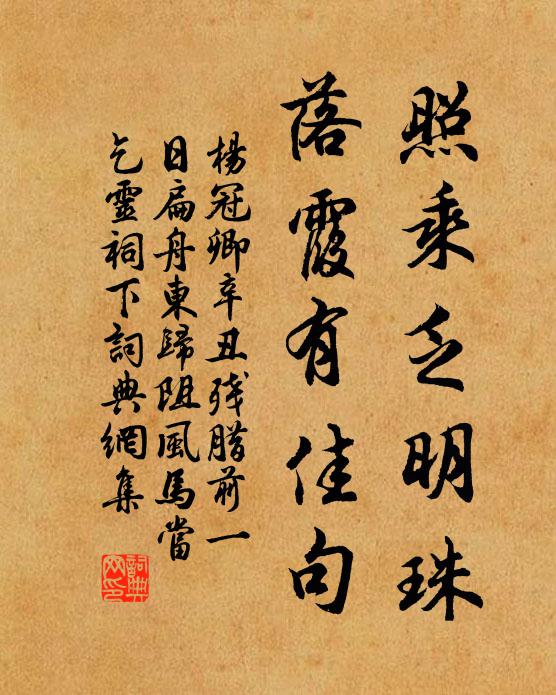 照乘乏明珠
落霞有佳句
楊冠卿辛丑残腊前一
日扁舟東歸阻風馬當
乞靈祠下詞典網集
詞典
网印